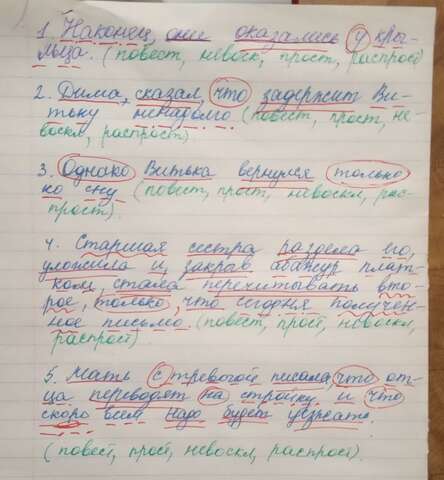 1. Наконец, они оказались у кры-
льца. (повест, невоск, прост, распрост)
2. Дима, сказал, что задержит Ви-
тьку ненадолго (повест, прост, не-
воскл, распрост)
3. Однако Витька вернулся только
ко сну (повест, прост, невоскл, рас-
прост).
4. Старшая сестра раздела его,
уложила и, закрыв абажур плат-
ком, стала перечитывать вто-
рое, только, что сегодня получен-
ное письмо. (повест, прост, невоскл,
распрост)
5. Мать с тревогой писала, что от-
ца переводят на стройку, и что
скоро всем надо будет уезжать.
(повест, прост, невоскл, распрост).